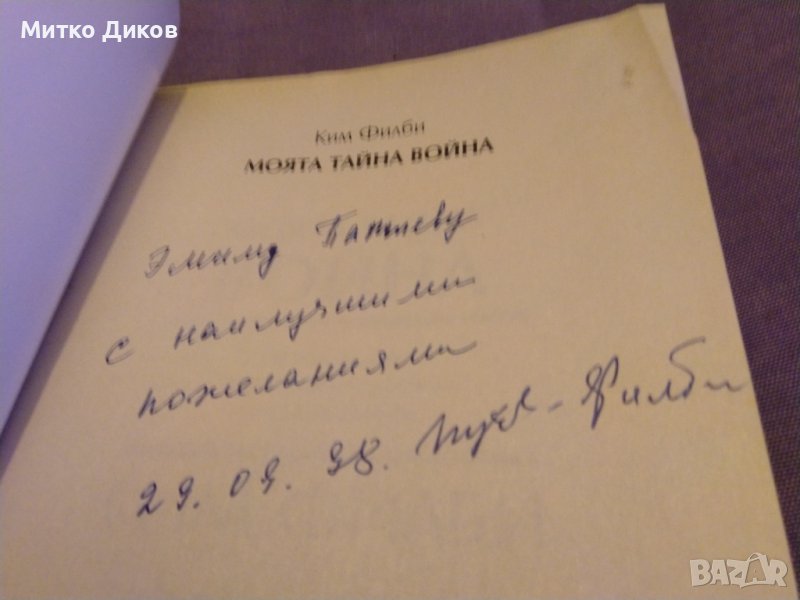 Митко Диков
Ким Филби
МОЯТА ТАЙНА ВОЙНА
Эмилу
с наилучшими
пожеланиями
29.09.98. Филби
BAZAR